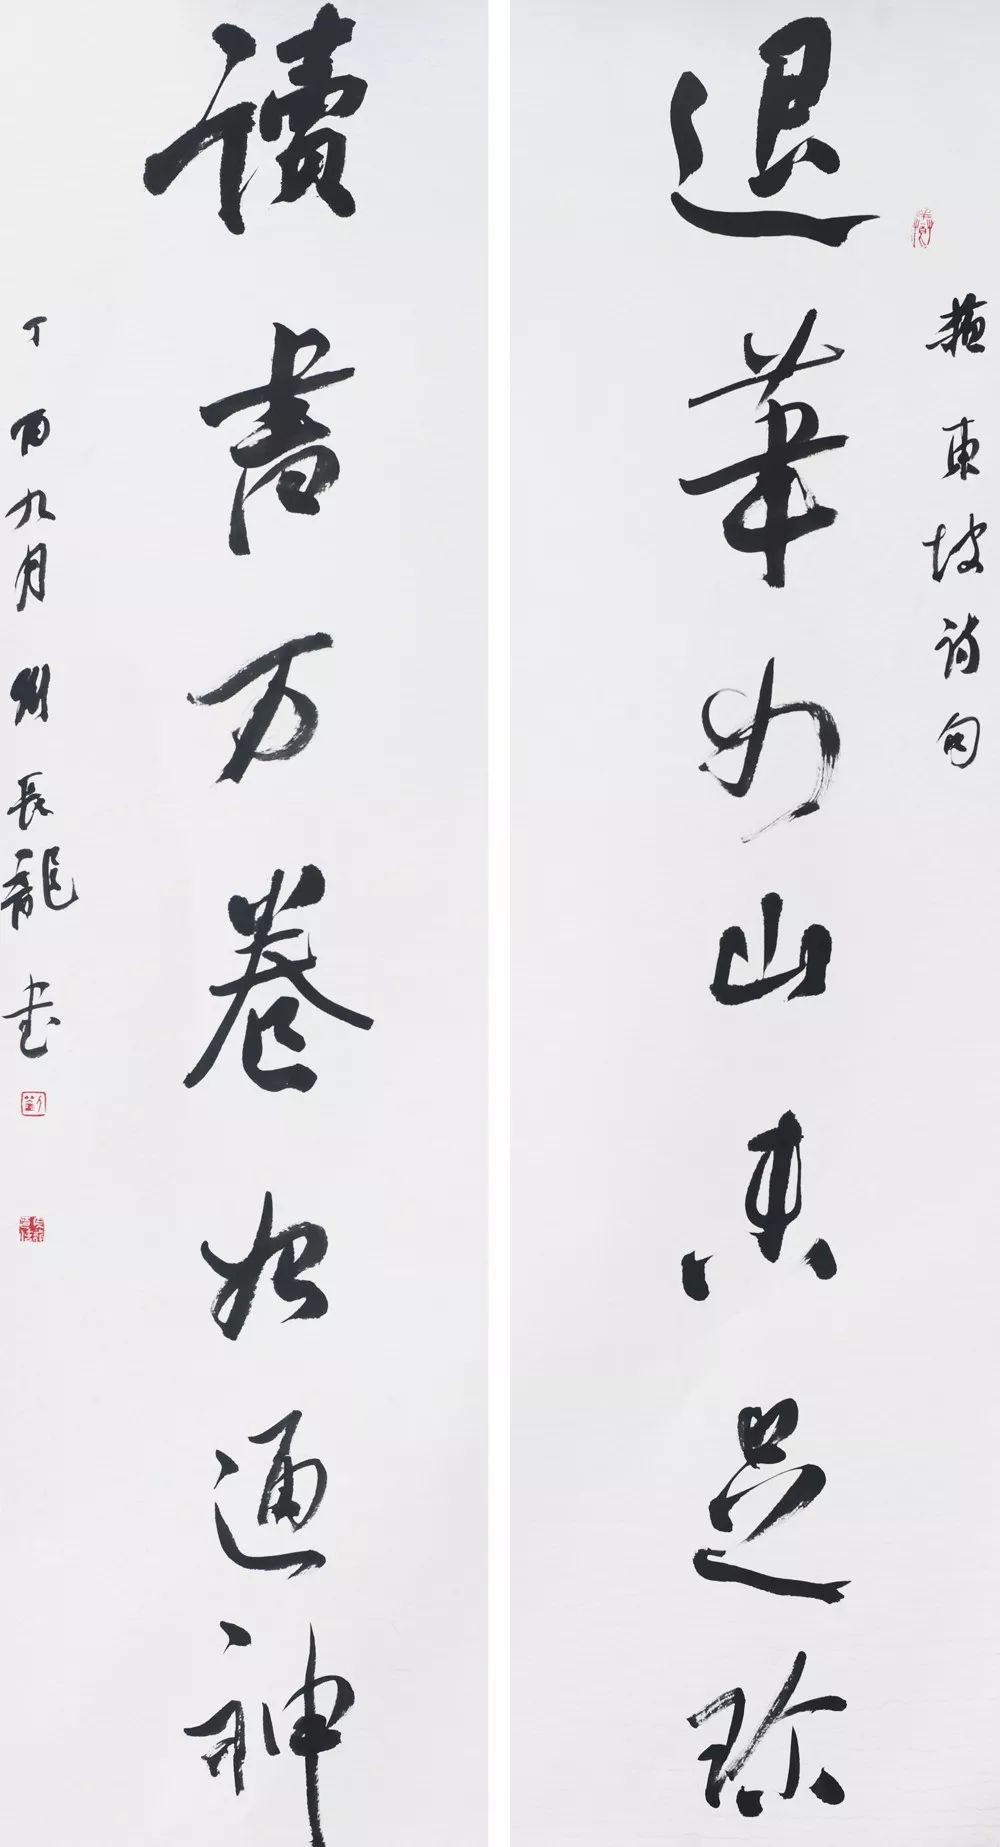 蘇東坡詩句
退筆如山未足珍
讀書万卷始通神
丁酉九月劉長龍書
劉